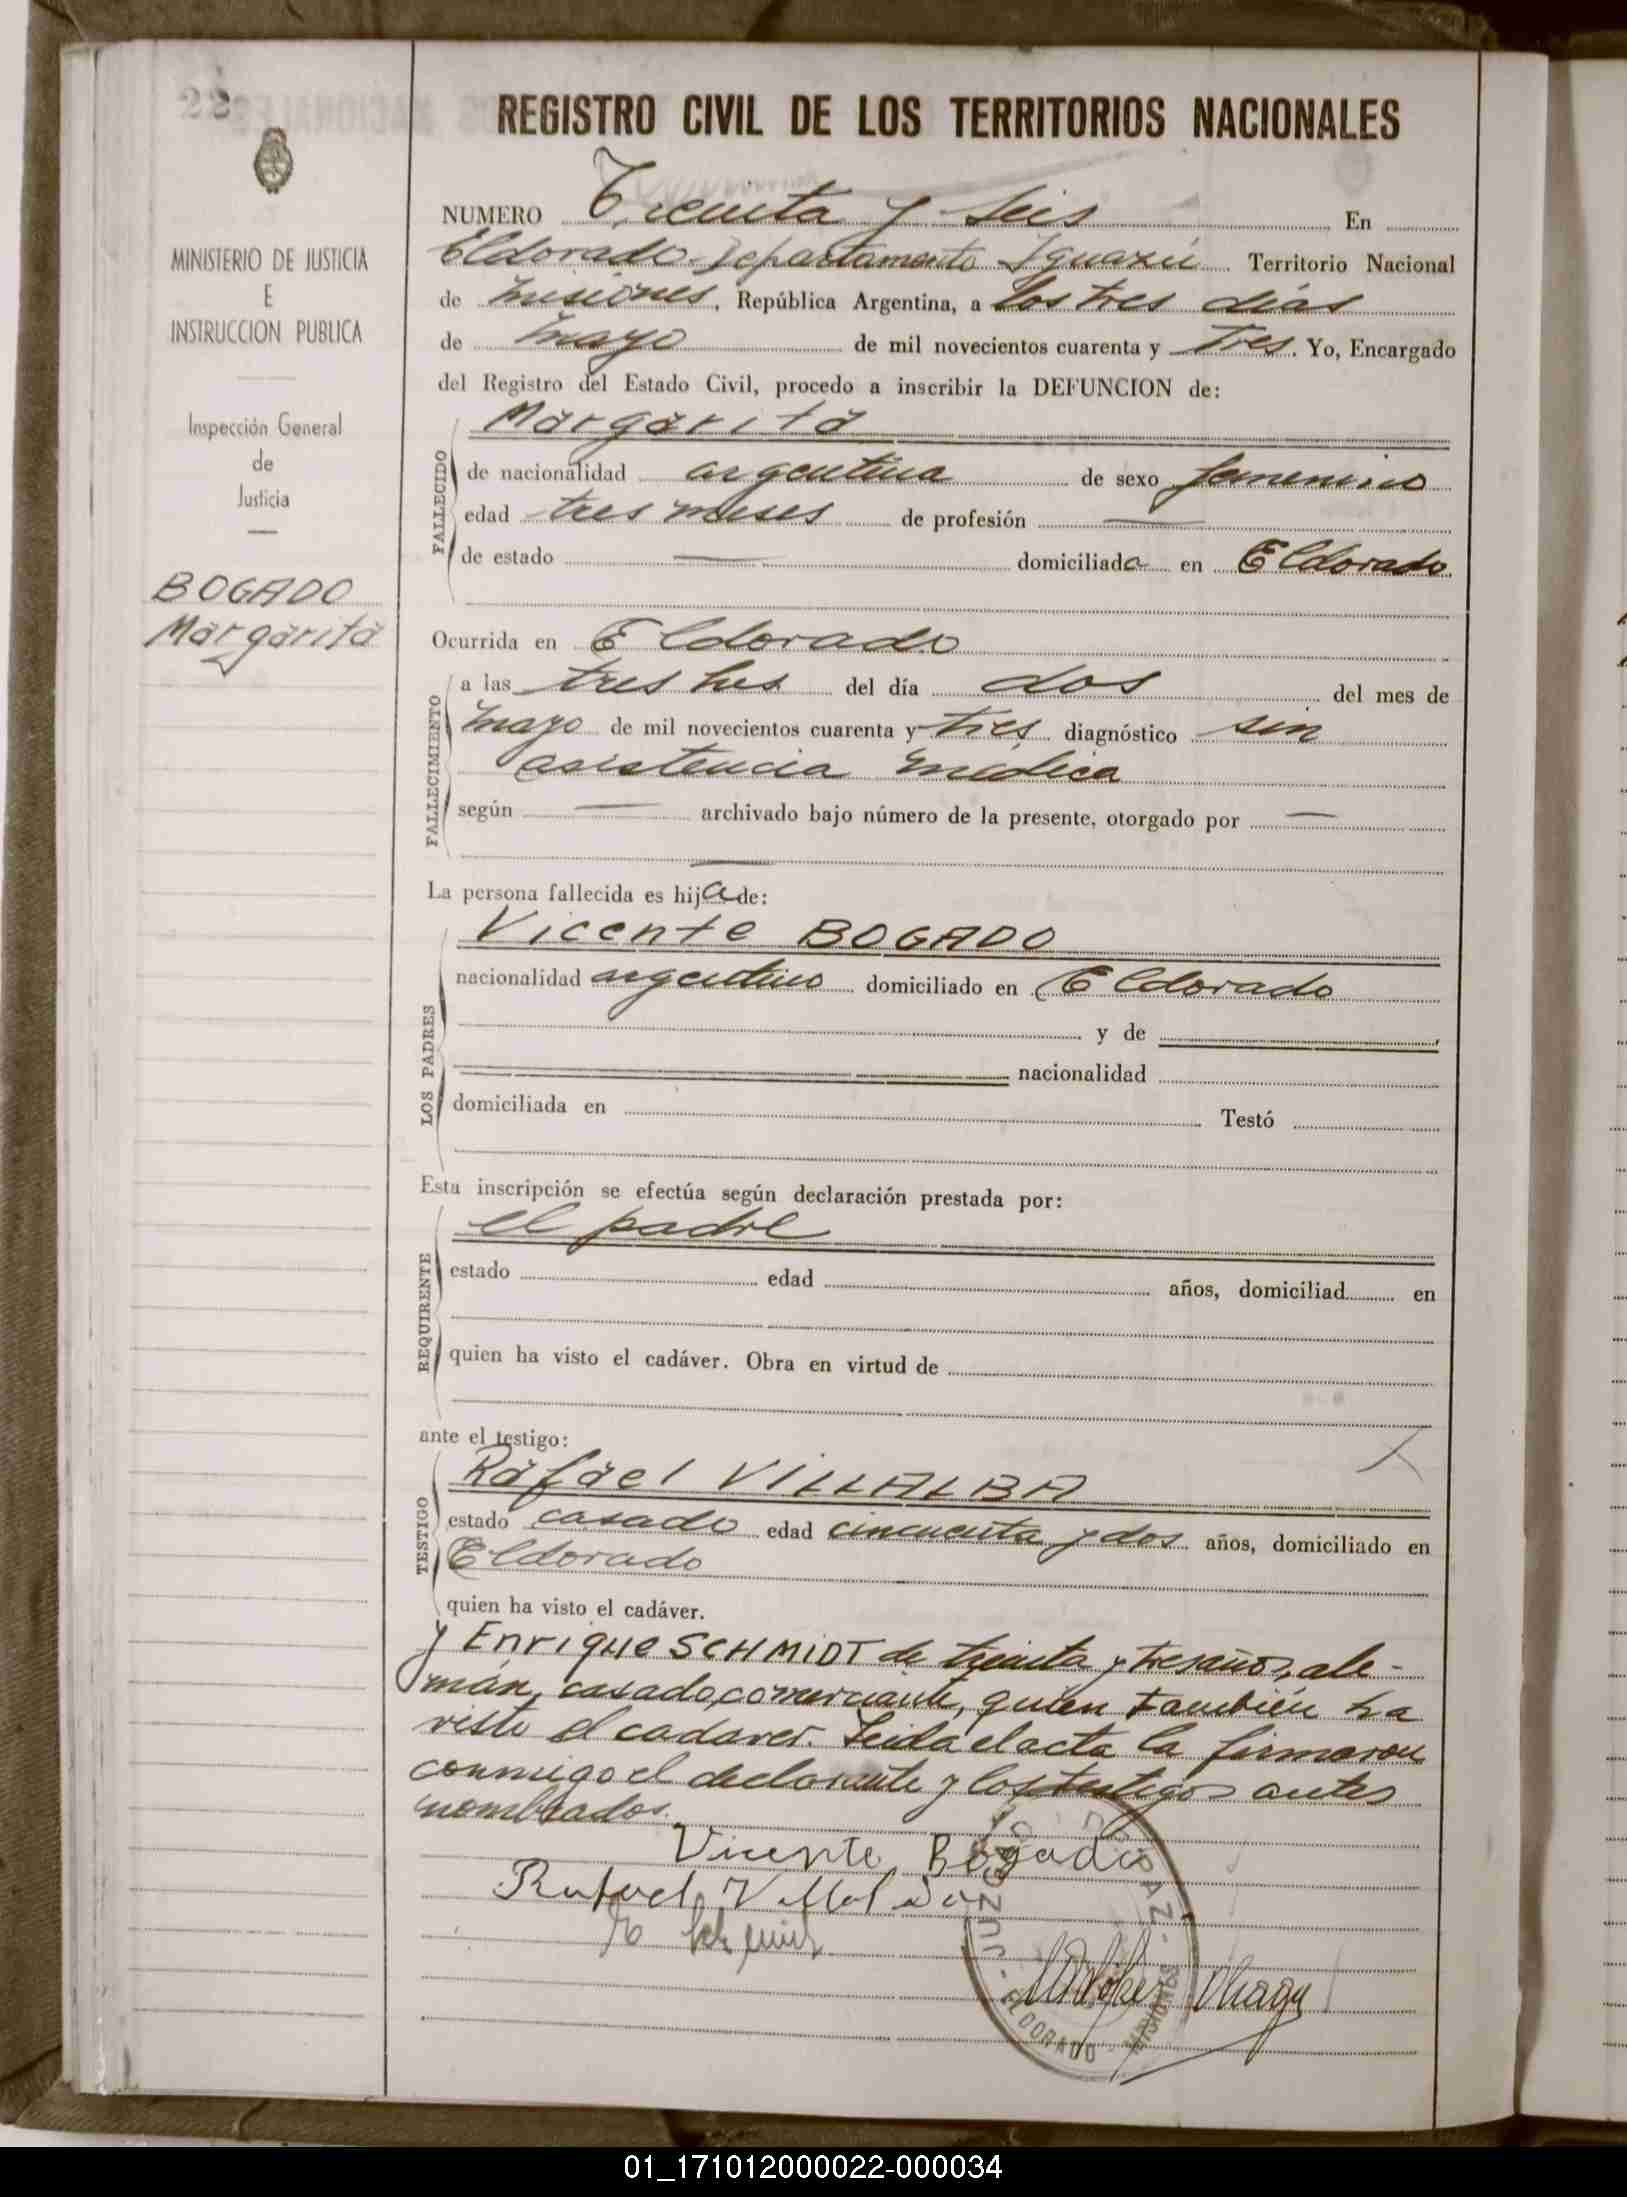 22
REGISTRO CIVIL DE LOS TERRITORIOS NACIONALES
MINISTERIO DE JUSTICIA
E
INSTRUCCION PUBLICA
Inspección General
de
Justicia
BOGADO
Margarita
NUMERO Treinta y seis En
Eldorado Departamento Iguazú Territorio Nacional
de Misiones, República Argentina, a los tres dias
de Mayo de mil novecientos cuarenta y tres. Yo, Encargado
del Registro del Estado Civil, procedo a inscribir la DEFUNCION de:
FALLECIDO
Margarita
de nacionalidad argentina de sexo femenino
edad tres meses de profesión —
de estado — domiciliada en Eldorado
Ocurrida en Eldorado
FALLECIMIENTO
a las tres hrs del día dos del mes de
Mayo de mil novecientos cuarenta y tres diagnóstico sin
asistencia medica
según — archivado bajo número de la presente, otorgado por —
—
La persona fallecida es hija de:
LOS PADRES
Vicente BOGADO
nacionalidad argentino domiciliado en Eldorado
y de
nacionalidad
domiciliada en Testó
Esta inscripción se efectúa según declaración prestada por:
REQUIRENTE
el padre
estado edad años, domiciliad en
quien ha visto el cadáver. Obra en virtud de
ante el testigo:
TESTIGO
Rafael VILLALBA
estado casado edad cincuenta y dos años, domiciliado en
Eldorado
quien ha visto el cadáver.
y Enrique SCHMIDT de treinta y tres años, ale-
mán, casado, comerciante, quien también ha
visto el cadaver. Leida el acta la firmaron
conmigo el declarante y los testigos antes
nombrados.
Vicente Bogado
Rafael Villalba
E Schmidt
JUZGADO DE PAZ
ELDORADO - MISIONES
01_171012000022-000034